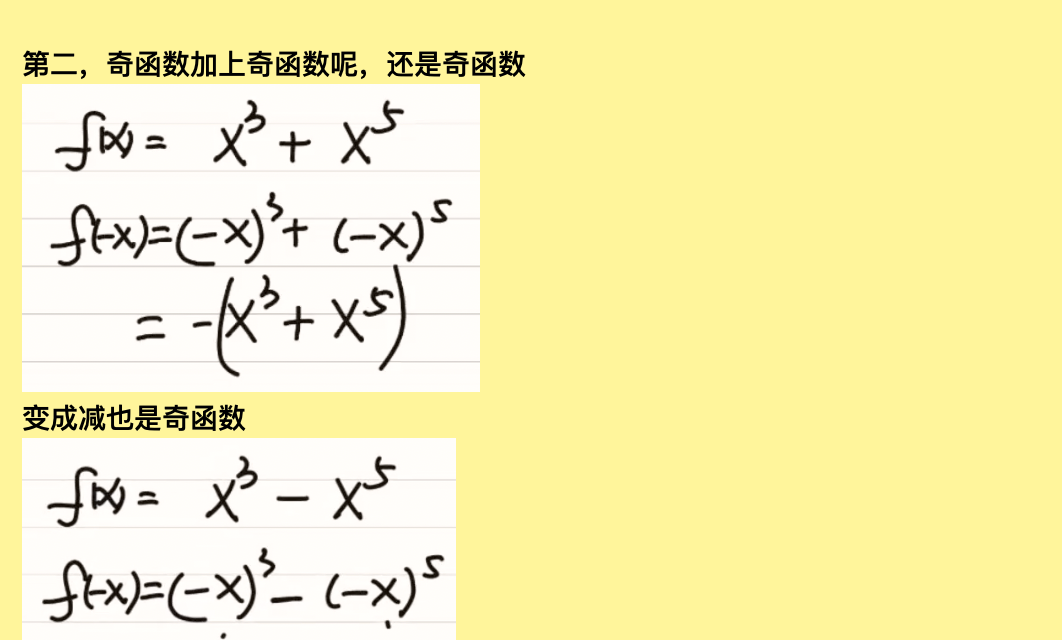 第二，奇函数加上奇函数呢，还是奇函数
f(x) = x³ + x⁵
f(-x)=(-x)³+ (-x)⁵
= -(x³ + x⁵)
变成减也是奇函数
f(x) = x³ - x⁵
f(-x)=(-x)³- (-x)⁵